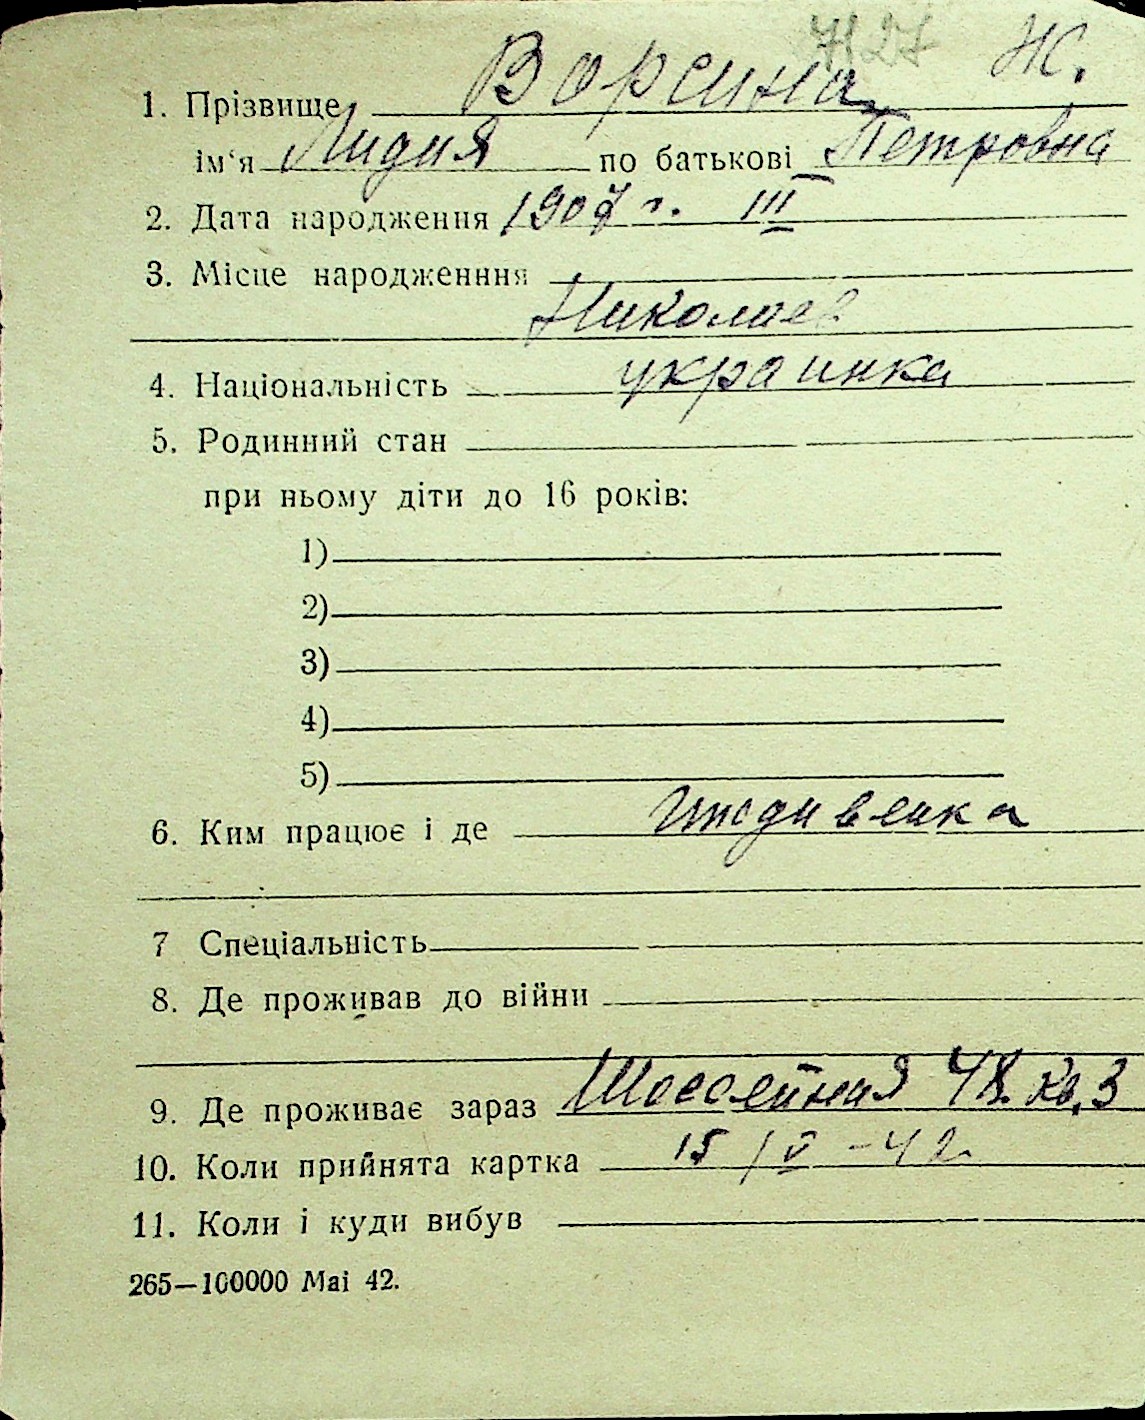 7127 Ж.
1. Прізвище Ворсина
ім‘я Лидия по батькові Петровна
2. Дата народження 1907 г. III
3. Місце народженння
Николаев
4. Національність украинка
5. Родинний стан
при ньому діти до 16 років:
1)
2)
3)
4)
5)
6. Ким працює і де иждивенка
7 Спеціальність
8. Де проживав до війни
9. Де проживає зараз Шоссейная 48. кв. 3
10. Коли прийнята картка 15/V -42
11. Коли і куди вибув
265—100000 Mai 42.